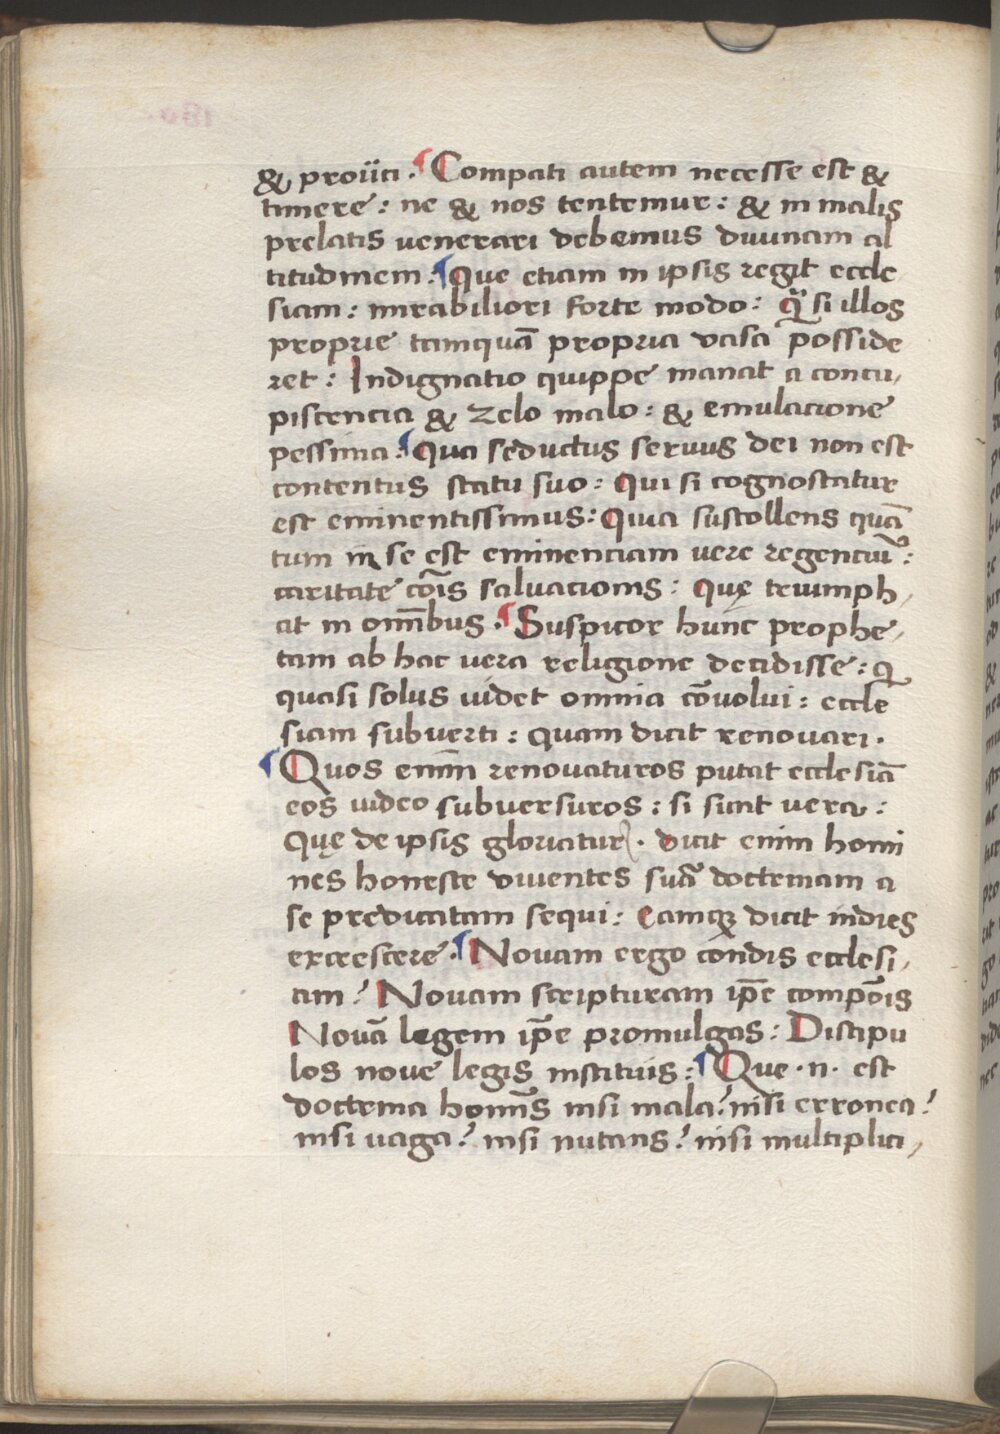 & proiici. ¶ Compati autem necesse est &
timere: ne & nos tentemur: & in malis
prelatis uenerari debemus diuinam al
titudinem: ¶ Que etiam in ipsis regit eccle
siam: mirabiliori forte modo: q̃ si illos
proprie tamquã propria vasa posside
ret: Indignatio quippe manat a concu,
piscencia & zelo malo: & emulacione
pessima: ¶ Qua seductus seruus dei non est
contentus statu suo: Qui si cognoscatur
est eminentissimus: Quia sustollens quã
tum in se est eminenciam uere regenciũ:
caritate cõis saluacionis: Quę triumph,
at in omĩbus. ¶ Suspicor hunc prophe,
tam ab hac uera religione decidisse: q
quasi solus uidet omnia cõuolui: eccle
siam subuerti: quam dicit renouari.
¶ Quos enim renouaturos putat ecclesiã
eos uideo subuersuros: si sunt vera:
Quę de ipsis gloriatur. dicit enim homi
nes honeste viuentes suã doctrinam a
se predicatam sequi: Eamq; dicit indies
excrescere. ¶ Nouam ergo condis ecclesi,
am? Nouam scripturam ip̃e compõis
Nouã legem ip̃e promulgas: Discipu
los noue legis instituis: ¶ Que .n. est
doctrina homĩs nisi mala? nisi erronea?
nisi uaga? nisi nutans? nisi multiplici,